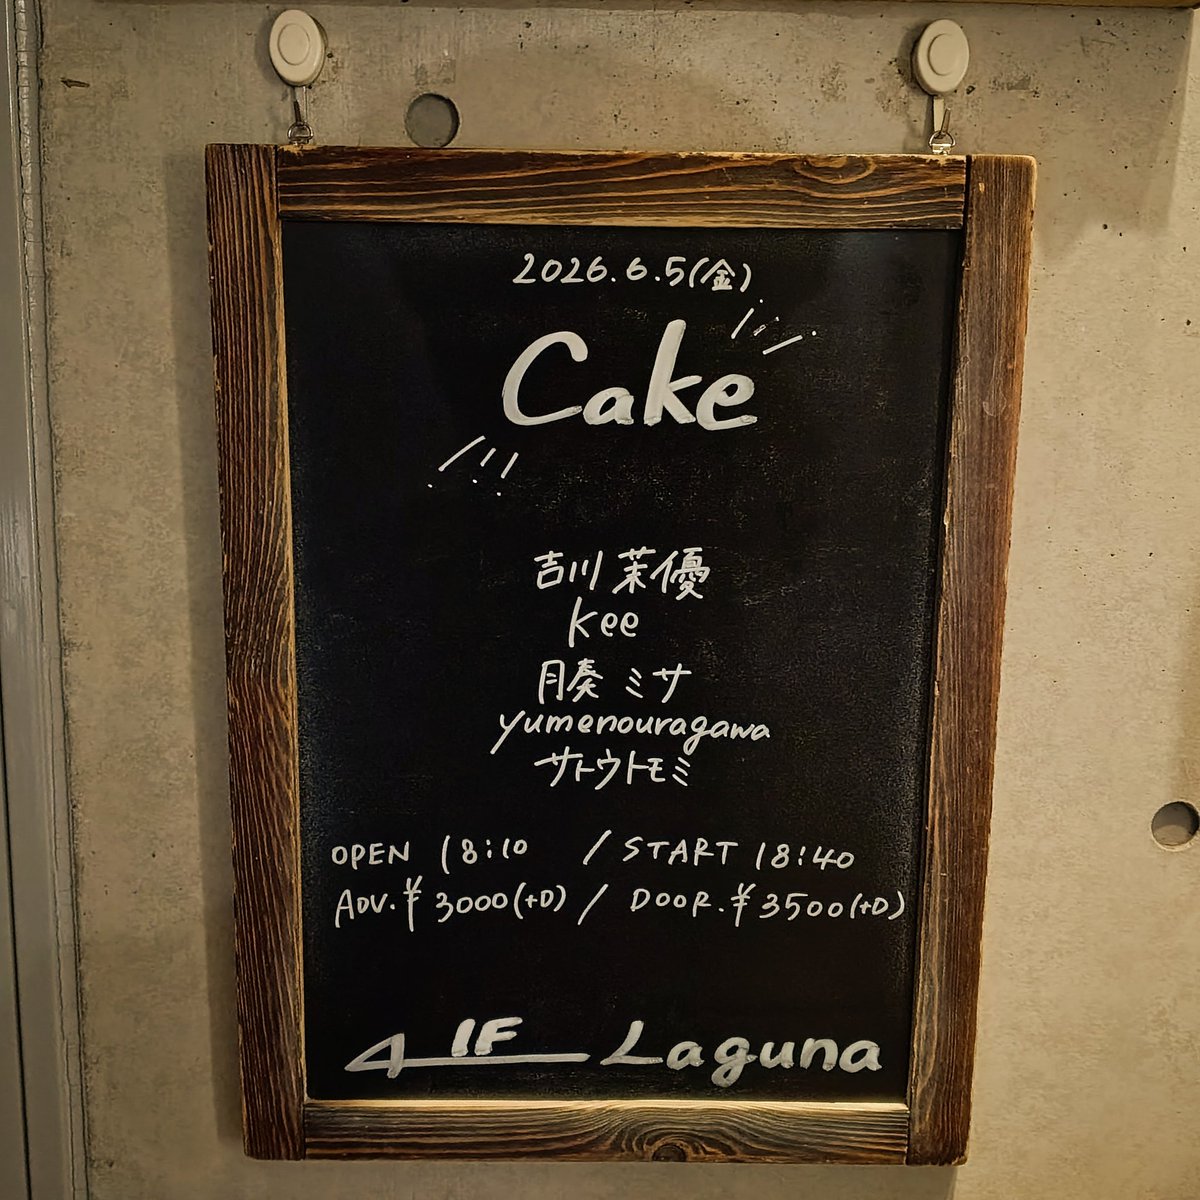 2026.6.5(金)
Cake
吉川茉優
kee
湊ミサ
yumenouragawa
サトウトモミ
OPEN 18:10 / START 18:40
ADV.¥3000(+D) / DOOR.¥3500(+D)
1F Laguna